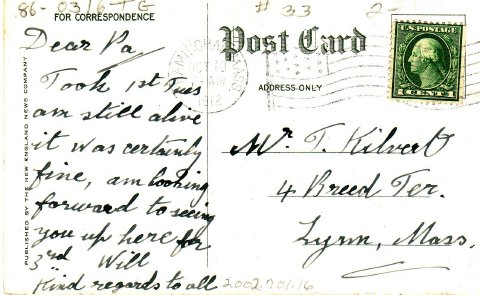 86-0316 TG
# 33
2-
FOR CORRESPONDENCE
Dear Pa,
Took 1st Tues
am still alive
it was certainly
fine, am looking
forward to seeing
you up here for
3rd Will
Kind regards to all
2002.701.16
PUBLISHED BY THE NEW ENGLAND NEWS COMPANY
Post Card
ADDRESS ONLY
1912
U.S. POSTAGE
1 CENT 1
Mr T. Kilvert
4 Breed Ter.
Lynn, Mass.